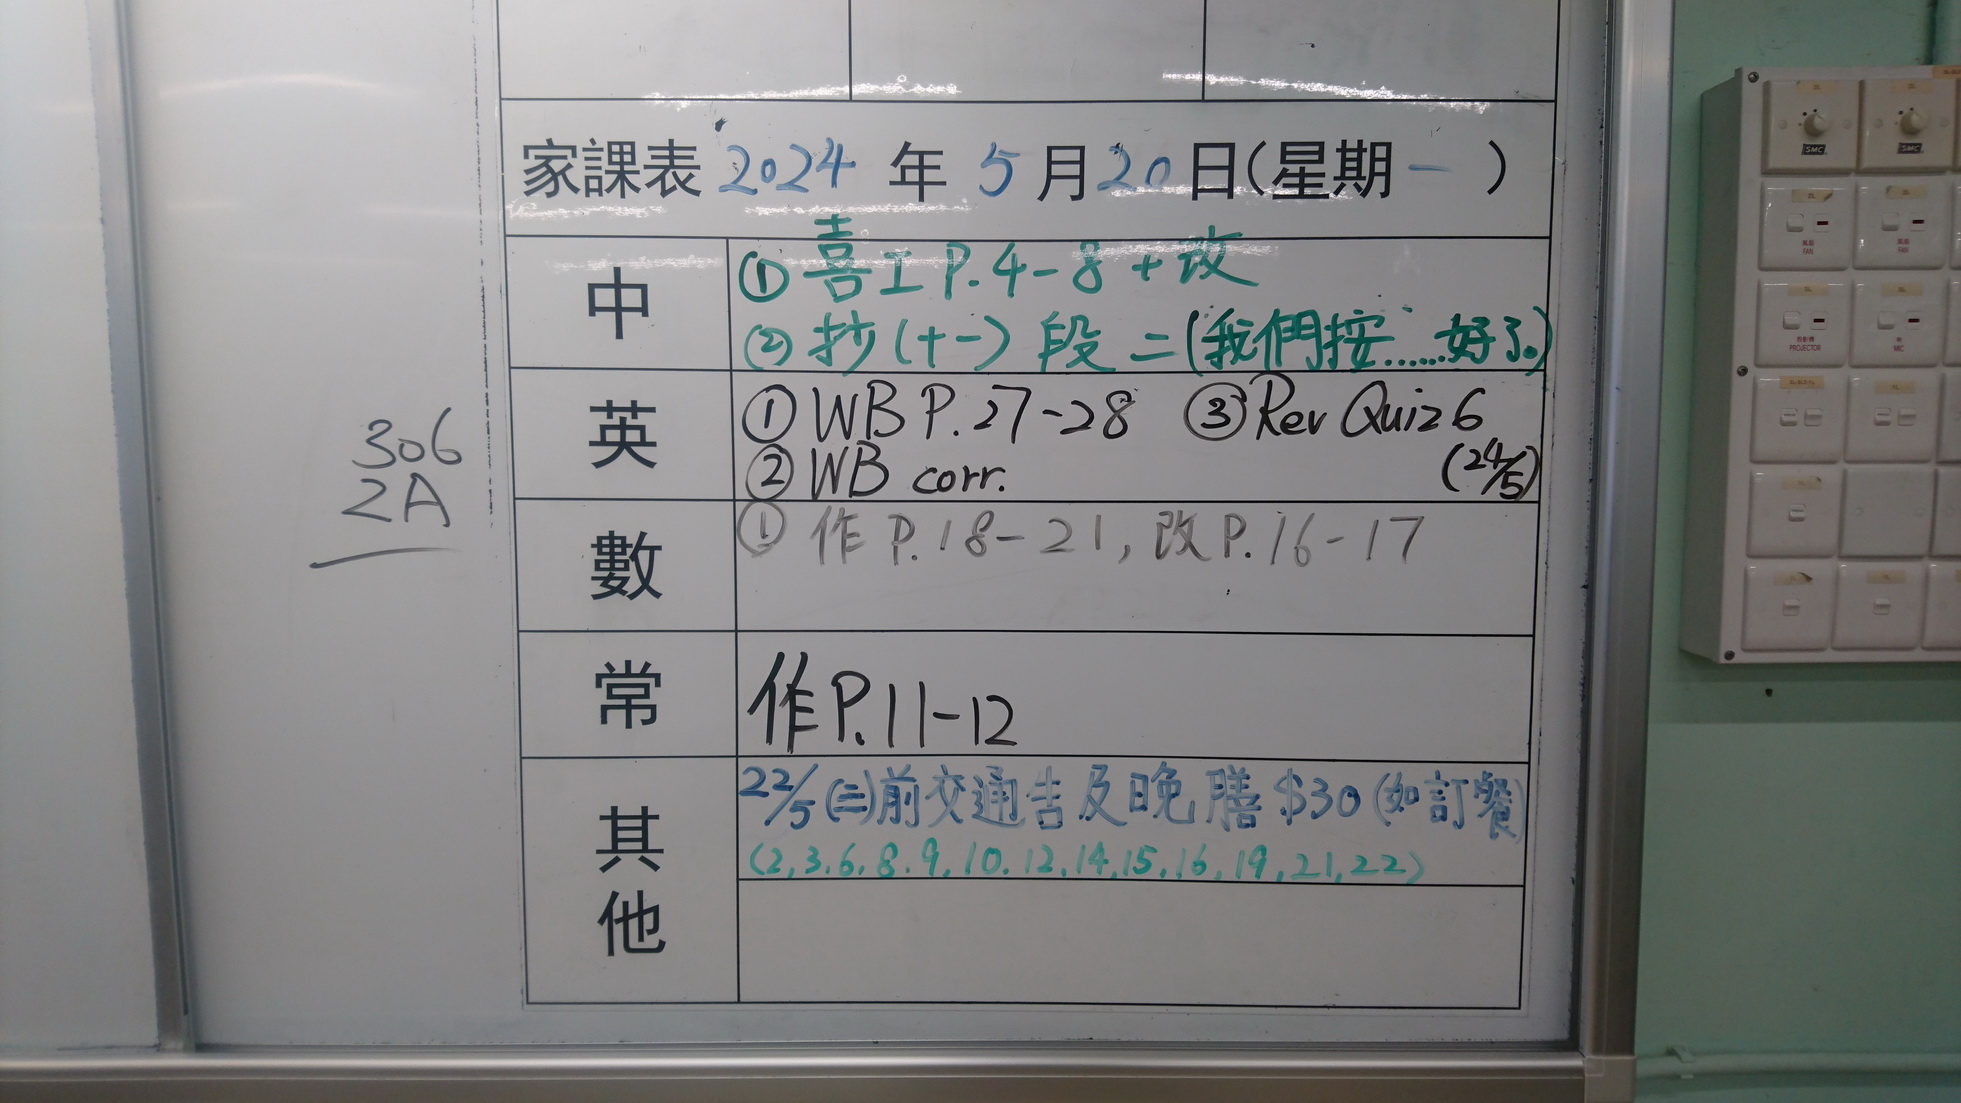 家課表 2024 年 5 月 20 日(星期一)
中
① 喜工P.4-8+改
② 抄(十一)段二(我們按......好了。)
英
① WB P.27-28 ③ Rev Quiz 6
② WB corr. (24/5)
306
2A
數
① 作 P.18-21, 改P.16-17
常
作P.11-12
其他
22/5(三)前交通告及晚膳$30(如訂餐)
(2,3.6,8.9,10.12,14,15,16,19,21,22)
SMC
SMC
風扇
FAN
風扇
FAN
PROJECTOR
MIC